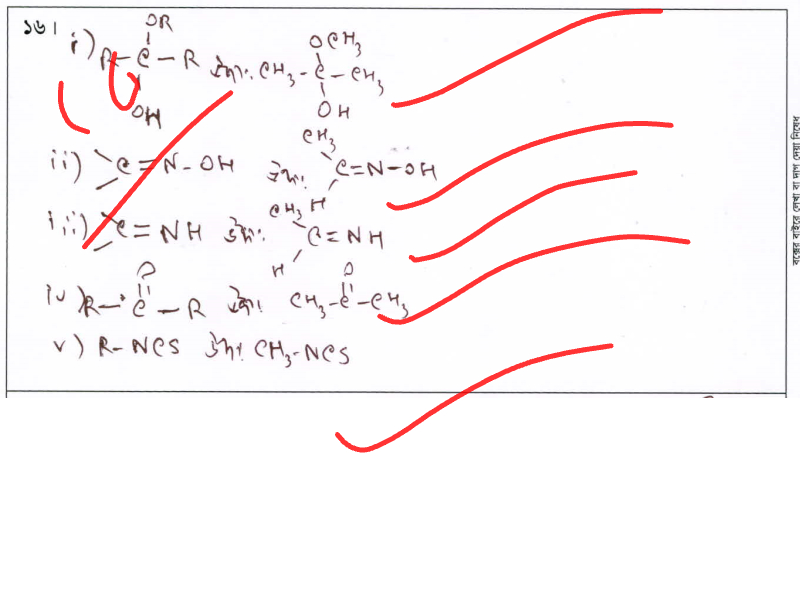 ১৬। i) R-C(OR)(OH)-R উদা: CH₃-C(OCH₃)(OH)-CH₃
ii) >C=N-OH উদা: CH₃ >C=N-OH H
iii) >C=NH উদা: CH₃ >C=NH H
iv) R-C(=O)-R উদা: CH₃-C(=O)-CH₃
v) R-NCS উদা: CH₃-NCS
বক্সের বাইরে লেখা বা দাগ দেয়া নিষেধ